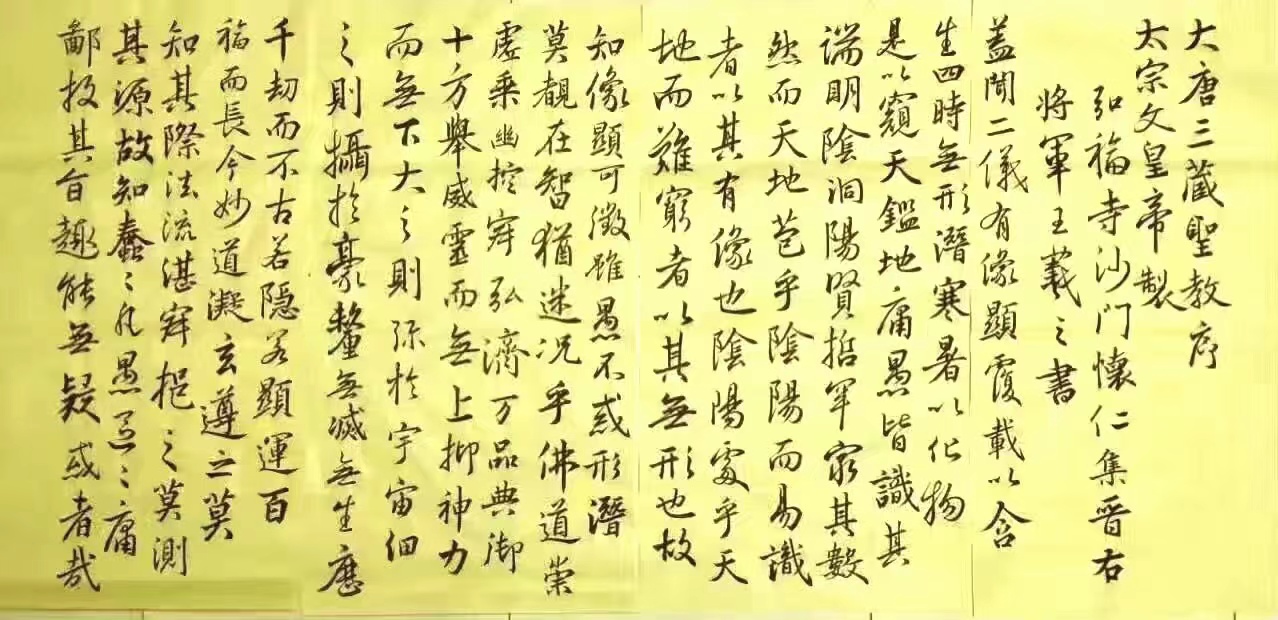 大唐三藏聖教序
太宗文皇帝製
弘福寺沙門懷仁集晉右
將軍王羲之書
蓋聞二儀有像顯覆載以含
生四時無形潛寒暑以化物
是以窺天鑑地庸愚皆識其
端明陰洞陽賢哲罕窮其數
然而天地苞乎陰陽而易識
者以其有像也陰陽處乎天
地而難窮者以其無形也故
知像顯可徵雖愚不惑形潛
莫覩在智猶迷况乎佛道崇
虛乘幽控寂弘濟万品典御
十方舉威靈而無上抑神力
而無下大之則弥於宇宙細
之則攝於豪釐無滅無生歷
千劫而不古若隱若顯運百
福而長今妙道凝玄遵之莫
知其際法流湛寂挹之莫測
其源故知蠢々凡愚區々庸
鄙投其旨趣能無疑或者哉